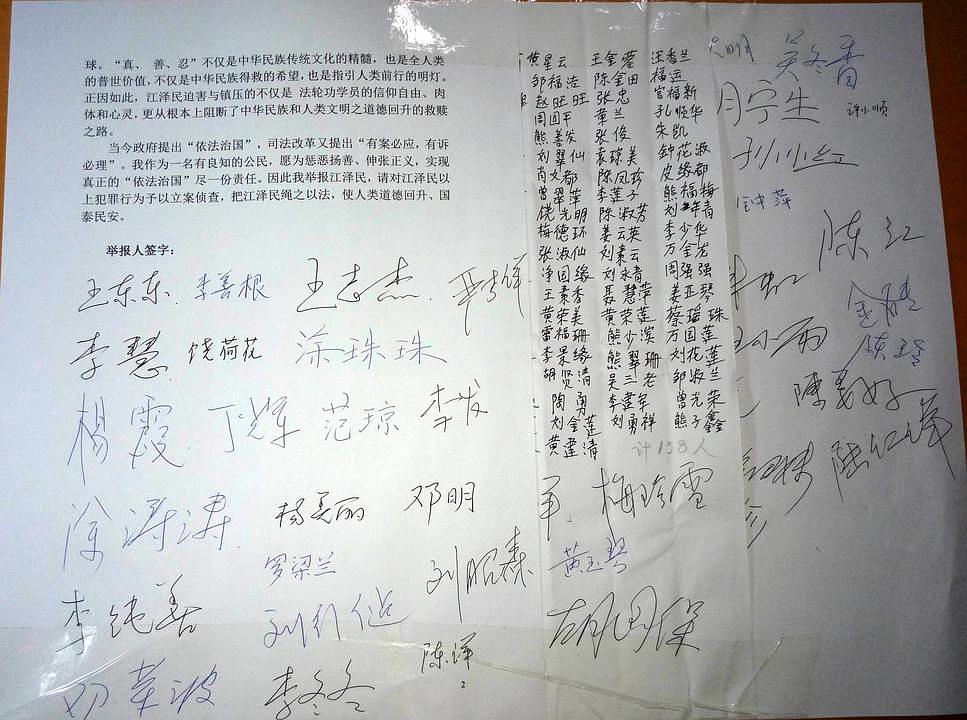 球。“真、善、忍”不仅是中华民族传统文化的精髓，也是全人类
的普世价值，不仅是中华民族得救的希望，也是指引人类前行的明灯。
正因如此，江泽民迫害与镇压的不仅是 法轮功学员的信仰自由、肉
体和心灵，更从根本上阻断了中华民族和人类文明之道德回升的救赎
之路。
当今政府提出“依法治国”，司法改革又提出“有案必应，有诉
必理”。我作为一名有良知的公民，愿为惩恶扬善、伸张正义，实现
真正的“依法治国”尽一份责任。因此我举报江泽民，请对江泽民以
上犯罪行为予以立案侦查，把江泽民绳之以法，使人类道德回升、国
泰民安。
举报人签字：
王东东 李善根 王志杰
李慧 饶荷花 涂珠珠
杨霞 范琼
徐涛涛 杨美丽 邓明
罗梁兰 刘昭森
李纯善
邓革波 李冬冬 陈洋
2
黄星云 王金蓉 汪香兰
邹福浩 陈金田 福运
赵旺旺 张忠 官福新
周回平 章兰 孔顺华
熊善发 张俊 朱凯
刘翠仙 袁琼美 钟花淑
肖文都 陈凤珍 皮缘都
曾翠萍 李莲子 熊福梅
饶光明 陈淑芳 刘年青
梅德环 姜云英 李少华
张淑仙 刘素云 万金龙
净回缘 刘永青 周强强
王素香 聂慧萍 姜亚琴
黄荣美 黄荣莲 蔡瑶珠
雷福珊 熊少滨 万国莲
李景缘 熊翠珊 刘花莲
胡贤清 吴三老 邹淑兰
陶勇 李建军 曾光荣
刘金莲 刘勇祥 熊子鑫
黄建清
计153人
梅玲雪
黄玉琴
胡国保
吴冬香
月宁生 许小顺
陈红
陈美好